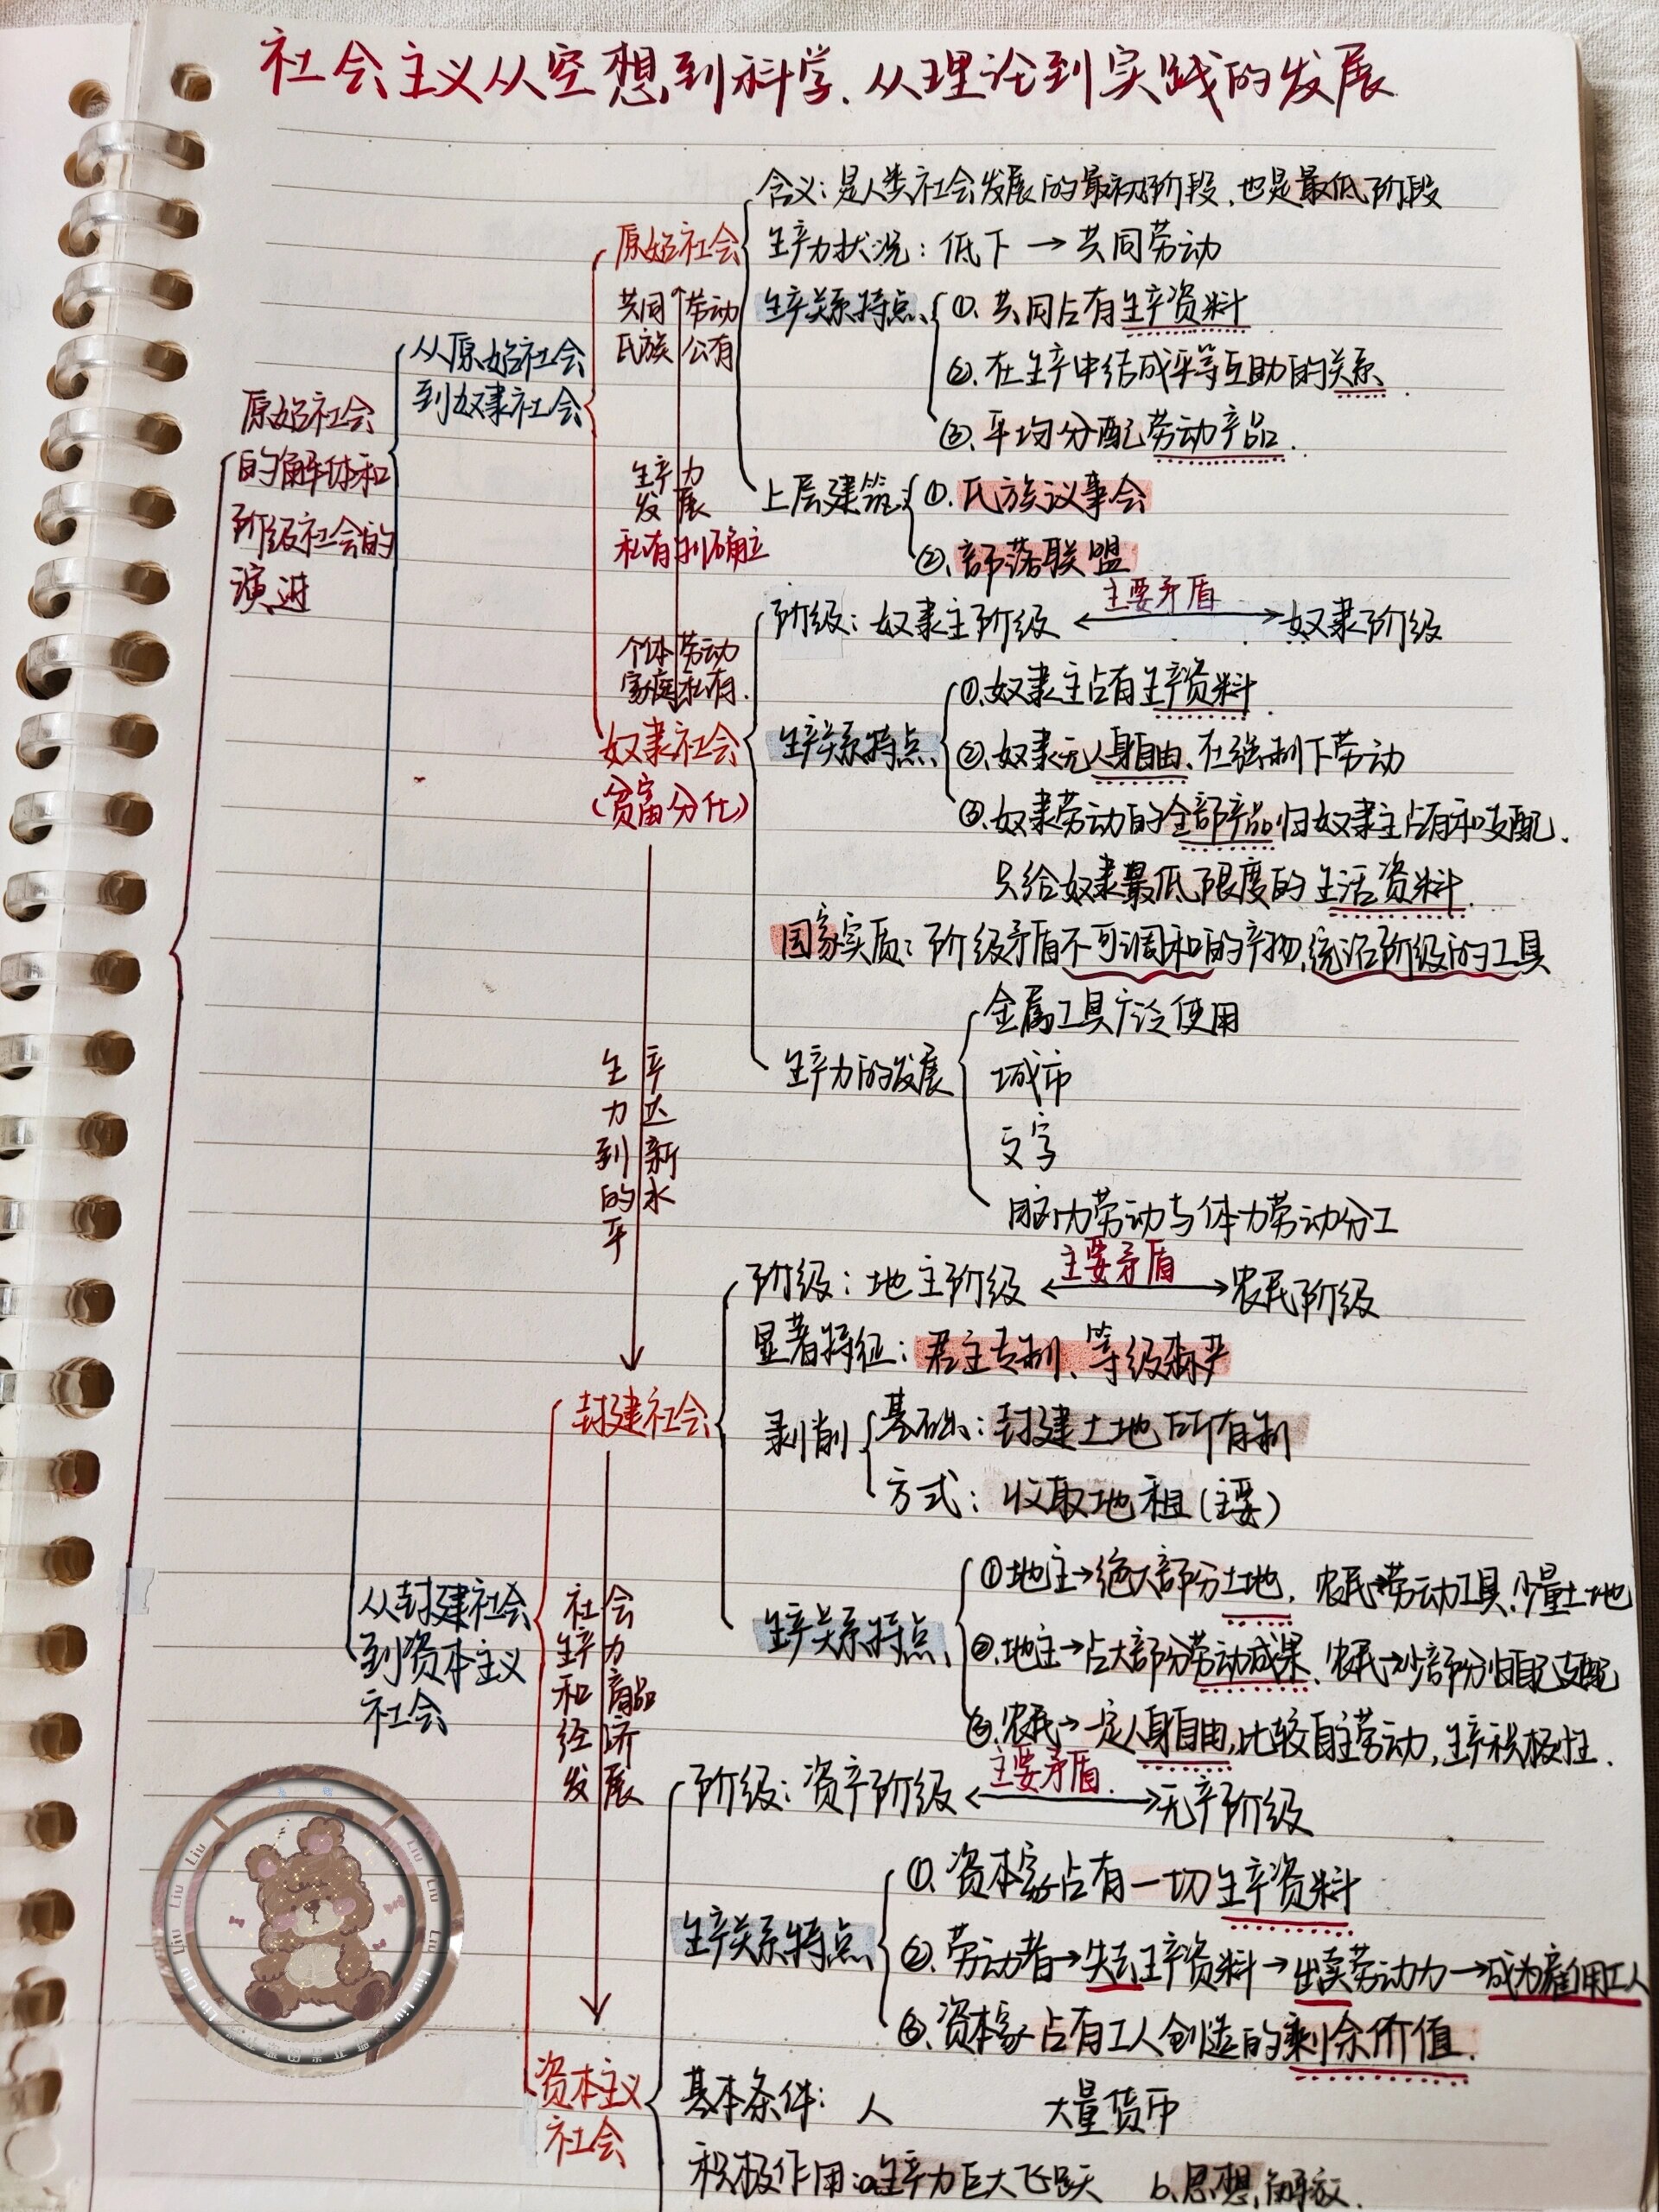 社会主义从空想到科学、从理论到实践的发展
原始社会
的解体和
阶级社会的
演进
从原始社会
到奴隶社会
原始社会
共同劳动
氏族公有
含义：是人类社会发展的最初阶段，也是最低阶段
生产力状况：低下→共同劳动
生产关系特点
①.共同占有生产资料
②.在生产中结成平等互助的关系
③.平均分配劳动产品.
上层建筑：
①.氏族议事会
②.部落联盟
生产力
发展
私有制确立
个体劳动
家庭私有.
奴隶社会
(贫富分化)
阶级：奴隶主阶级 ←主要矛盾→ 奴隶阶级
生产关系特点
①.奴隶主占有生产资料.
②.奴隶无人身自由、在强制下劳动
③.奴隶劳动的全部产品归奴隶主占有和支配.
只给奴隶最低限度的生活资料.
国家实质：阶级矛盾不可调和的产物,统治阶级的工具
生产力的发展
金属工具广泛使用
城市
文字
脑力劳动与体力劳动分工
生产
力达
到新
的水
平
从封建社会
到资本主义
社会
封建社会
阶级：地主阶级 ←主要矛盾→ 农民阶级
显著特征：君主专制、等级森严
剥削
基础：封建土地所有制
方式：收取地租(主要)
生产关系特点
①地主→绝大部分土地，农民→劳动工具、少量土地
②.地主→占大部分劳动成果、农民→少部分归自己支配
③.农民→一定人身自由,比较自主劳动,生产积极性.
社会
生产力
和商品
经济
发展
资本主义
社会
阶级：资产阶级 ←主要矛盾.→ 无产阶级
生产关系特点
①.资本家占有一切生产资料
②.劳动者→失去生产资料→出卖劳动力→成为雇佣工人
③.资本家占有工人创造的剩余价值.
基本条件：人 大量货币
积极作用：a.生产力巨大飞跃 b.思想解放.
Liu Liu Liu Liu Liu Liu Liu Liu Liu